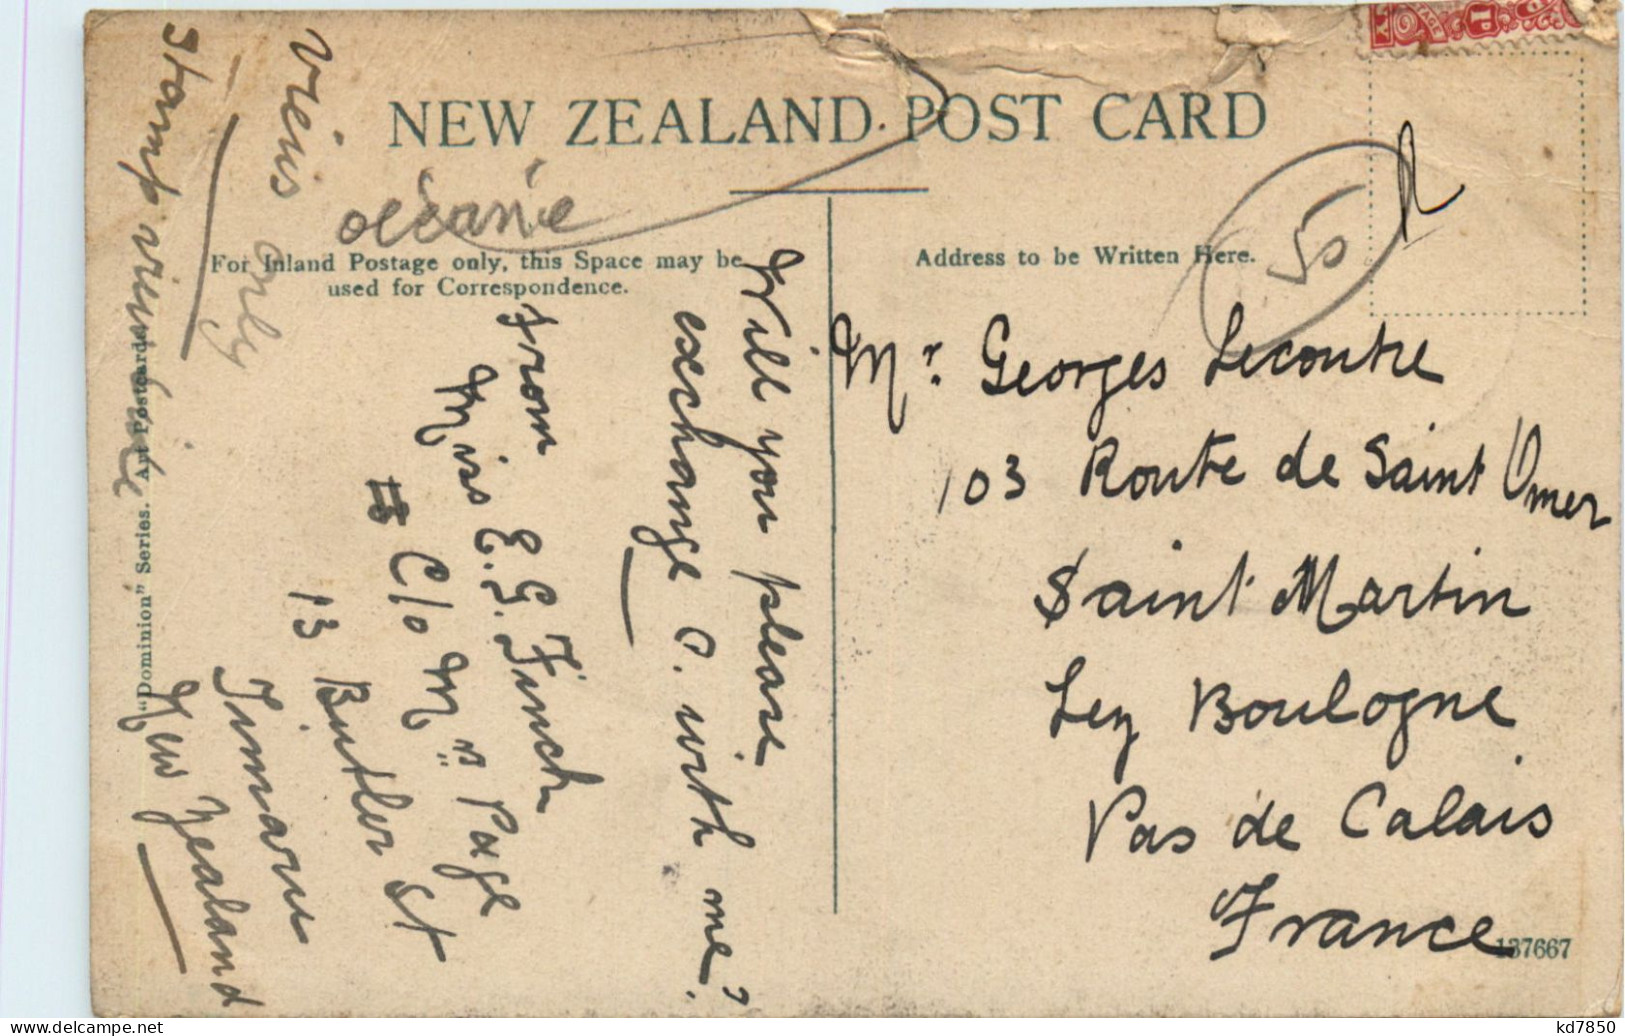 NEW ZEALAND POST CARD
océanie
For Inland Postage only, this Space may be
used for Correspondence.
Address to be Written Here.
50
Will you please
exchange C. with me?
From
Miss E. G. Finch
C/o Mrs Page
13 Butler St
Timaru
New Zealand
views only
Stamp view side
"Dominion" Series. Art Postcards
Mr. Georges Lecoutre
103 Route de Saint Omer
Saint Martin
Lez Boulogne
Pas de Calais
France
137667
kd7850